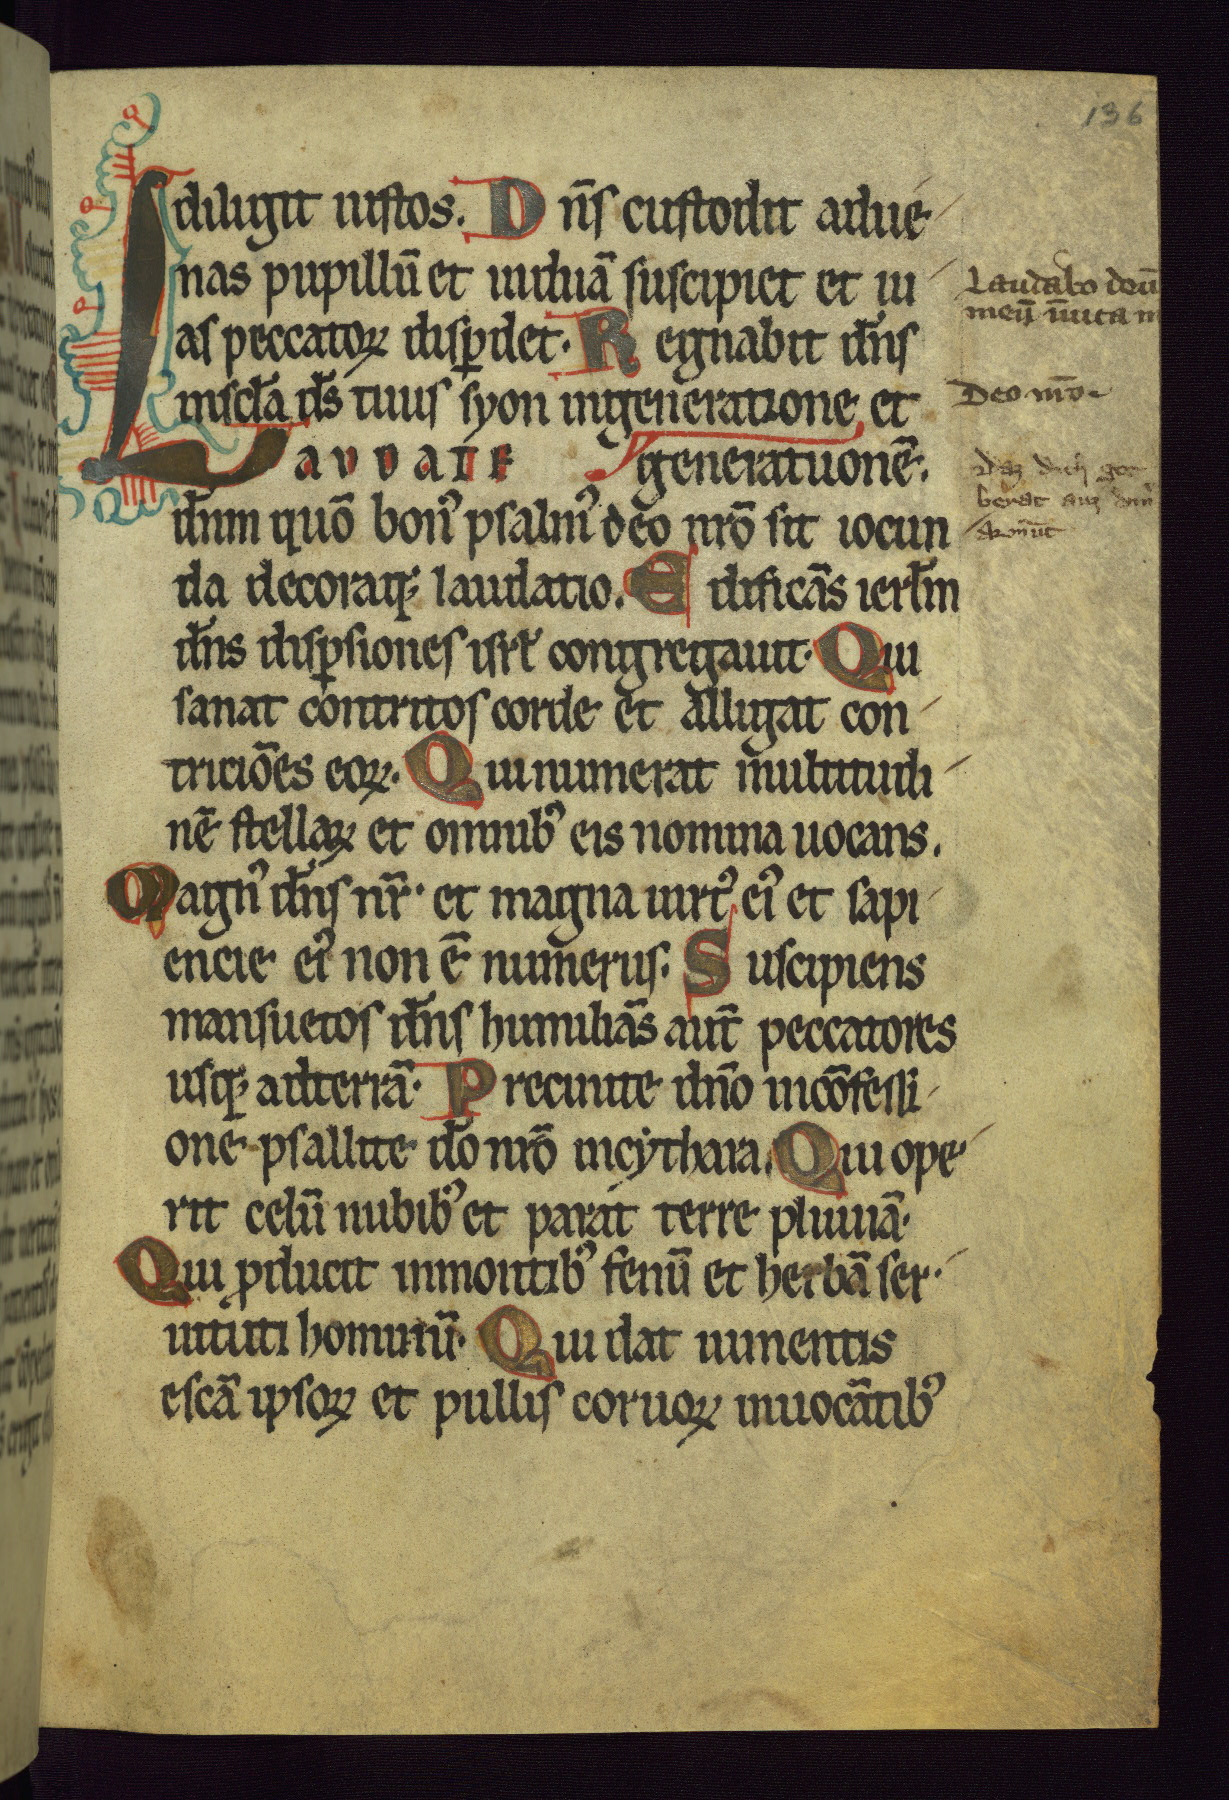 136
diligit iustos. D n̄s custodit adue
nas pupillū et uiduā suscipiet et ui
as peccatoꝝ disꝑdet. R egnabit dn̄s
inscl̄a ds̄ tuus syon ingeneratione et
L AUDATE generationē.
dn̄m quō bonꝰ psalmꝰ deo nr̄o sit iocun
da decoraqꝫ laudatio. E dificās ierl̄m
dn̄s disꝑsiones isrl̄ congregauit. Qui
sanat contritos corde et alligat con
triciōes eoꝝ. Q ui numerat multitudi
nē stellaꝝ et omnibꝰ eis nomina uocans.
Magnꝰ dn̄s nr̄. et magna uirtꝰ eiꝰ et sapi
encie eiꝰ non ē numerus. S uscipiens
mansuetos dn̄s humiliās aut̄ peccatores
usqꝫ adterrā. P recinite dn̄o incōfessi
one psallite dō nr̄o incythara. Qui ope
rit celū nubibꝰ et parat terre pluuiā.
Qui ꝓducit inmontibꝰ fenū et herbā ser
uituti hominū. Q ui dat iumentis
escā ipsoꝝ et pullis coruoꝝ inuocātibꝰ
Laudabo deū
meū in uita m
Deo nr̄o
daz dich got